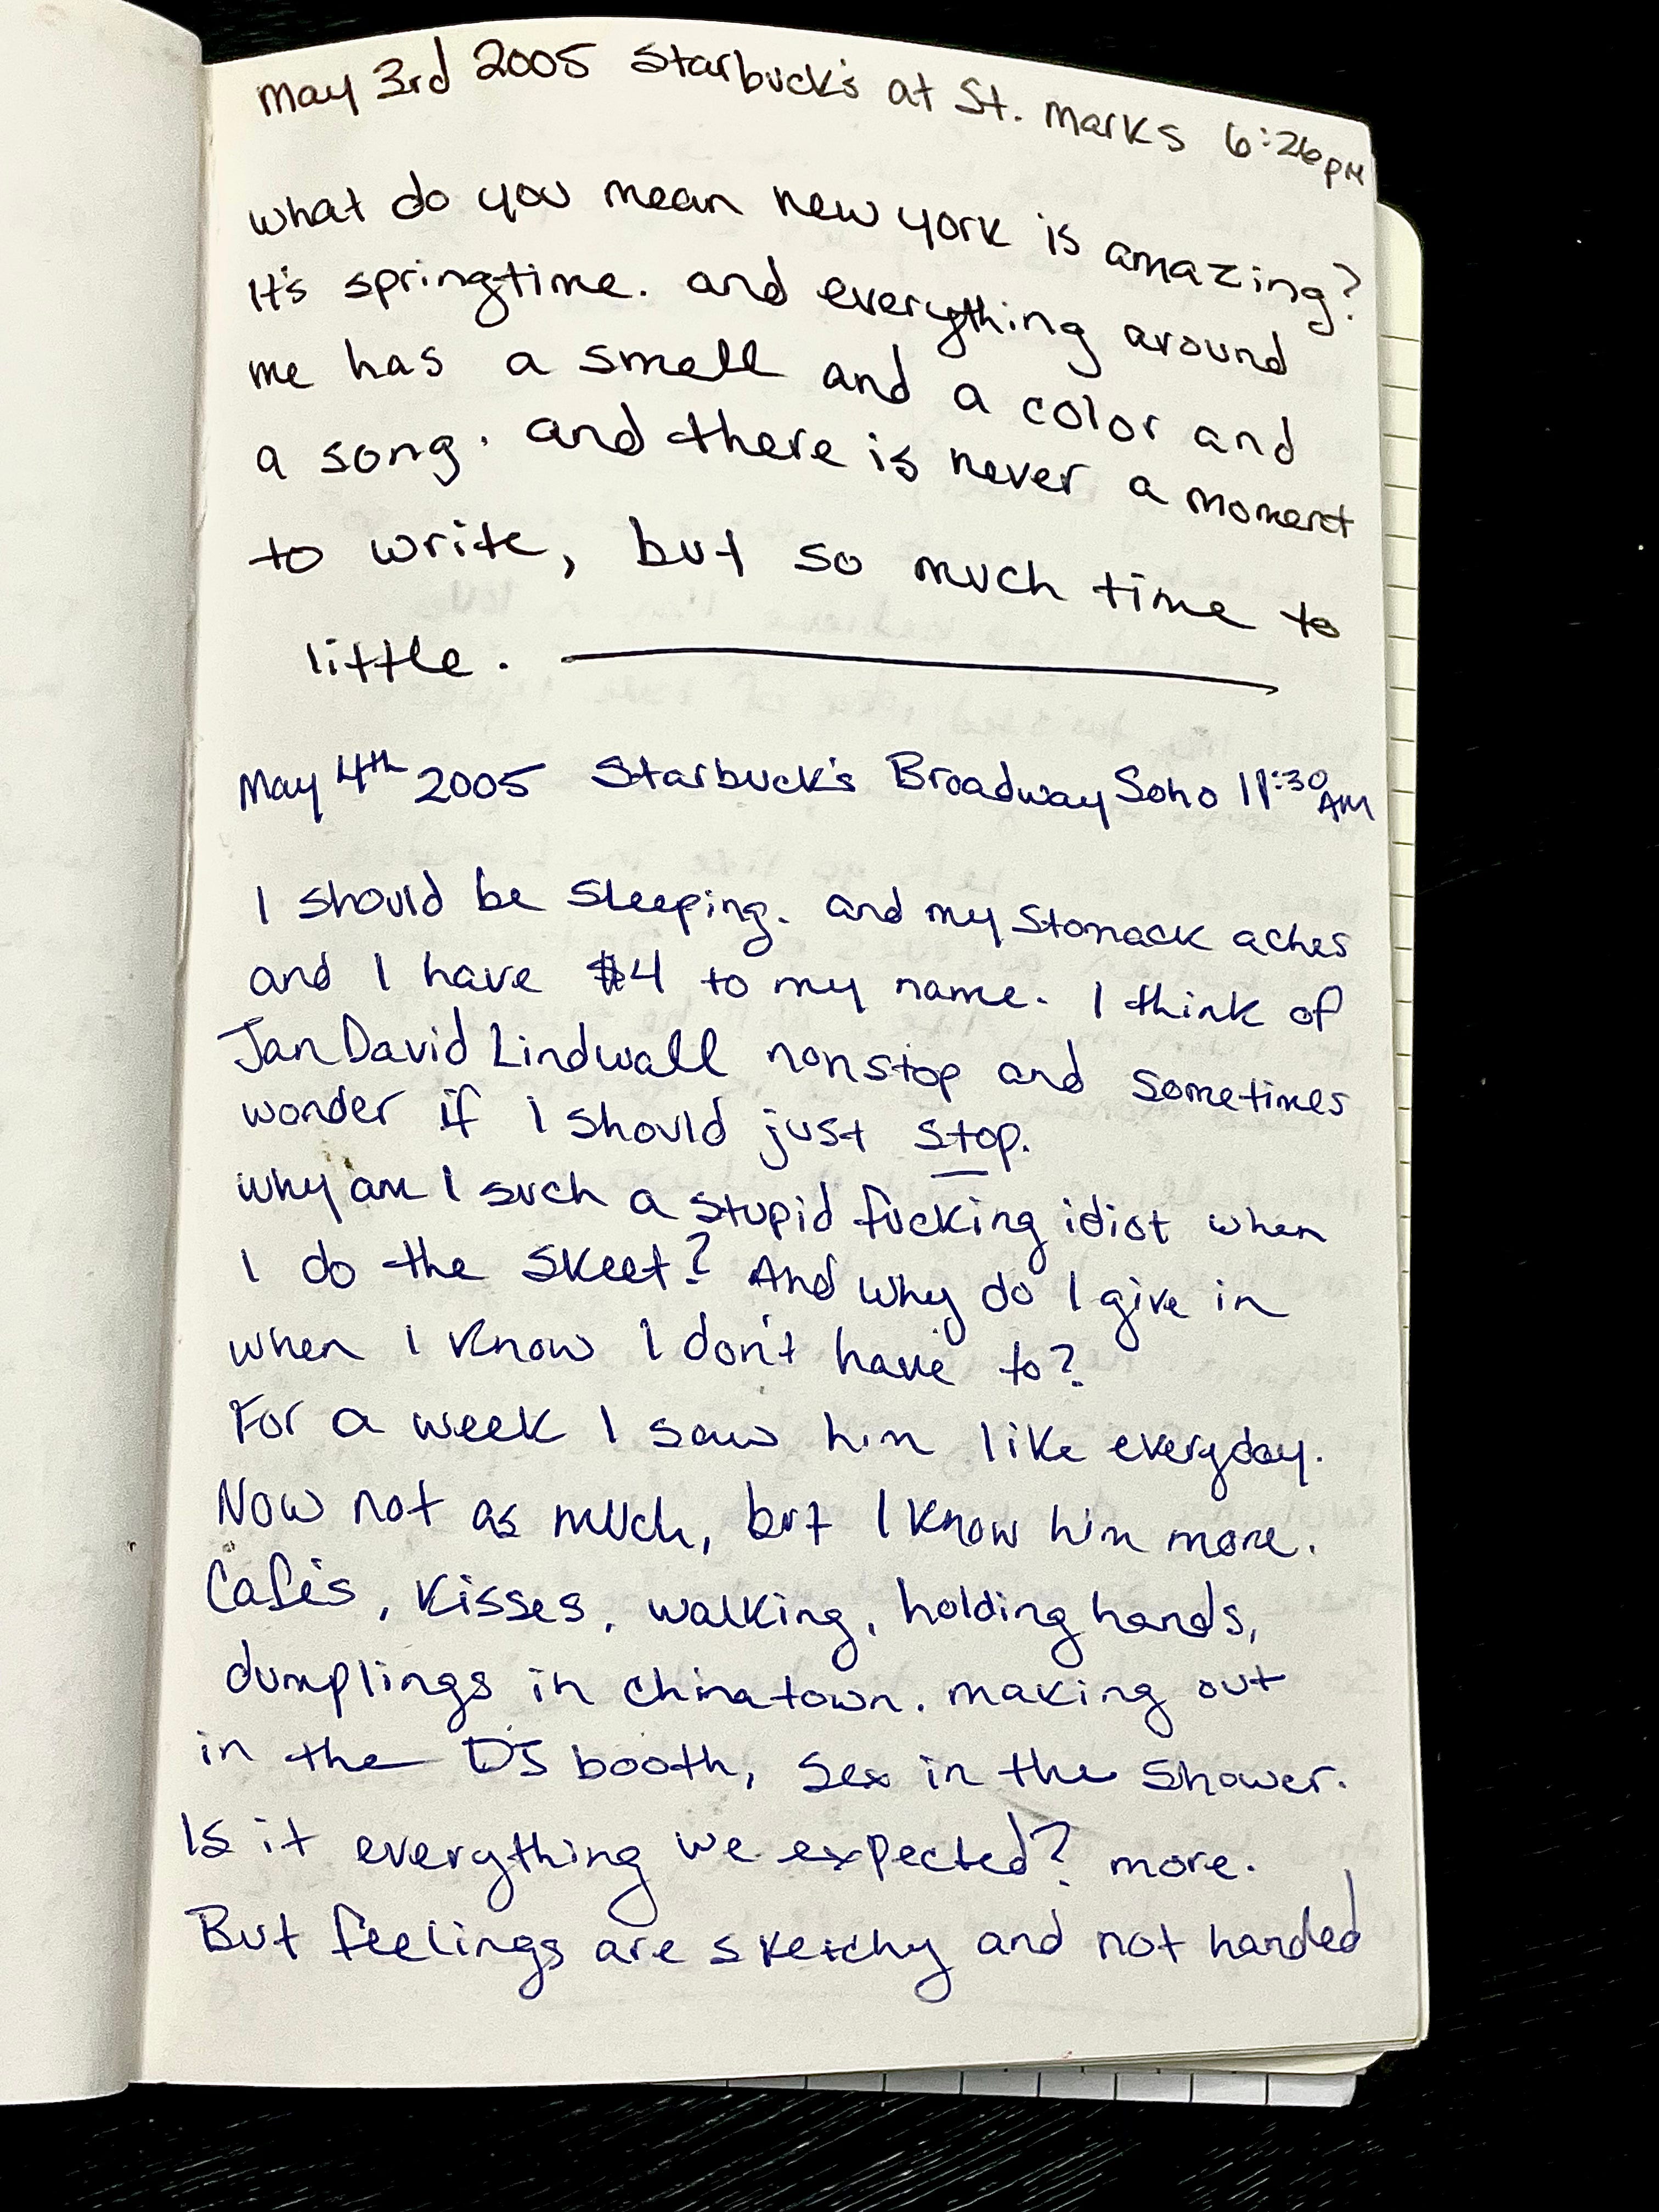 May 3rd 2005 Starbuck's at St. Marks 6:26PM
what do you mean new york is amazing?
It's springtime. and everything around
me has a smell and a color and
a song. and there is never a moment
to write, but so much time to
little.
May 4th 2005 Starbuck's Broadway Soho 11:30AM
I should be sleeping. and my Stomack aches
and I have $4 to my name. I think of
Jan David Lindwall nonstop and sometimes
wonder if I should just stop.
why am I such a stupid fucking idiot when
I do the skeet? And why do I give in
when I know I don't have to?
For a week I saw him like everyday.
Now not as much, but I know him more.
Cafés, kisses, walking, holding hands,
dumplings in chinatown. making out
in the DJ booth, sex in the shower.
Is it everything we expected? more.
But feelings are sketchy and not handed